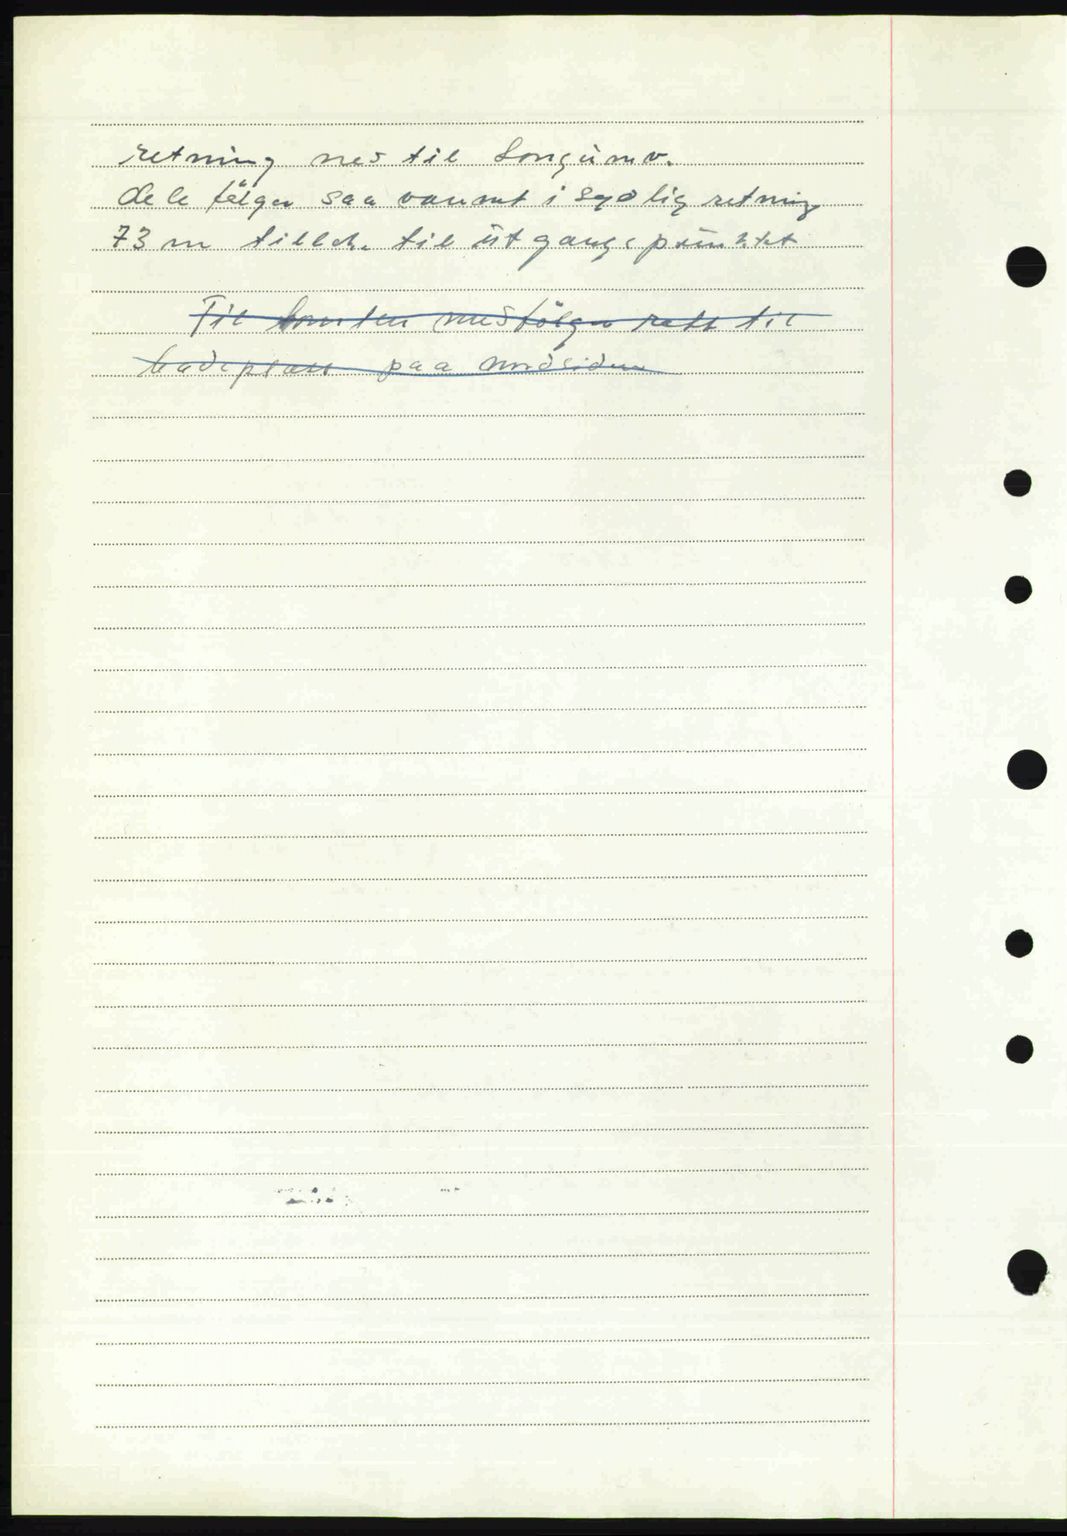 retning ned til Longumv.
Dele følger saa vannet i sydlig retning
73 m till. til utgangspunktet
Til tomten medfølger rett til
badeplass paa nordsiden